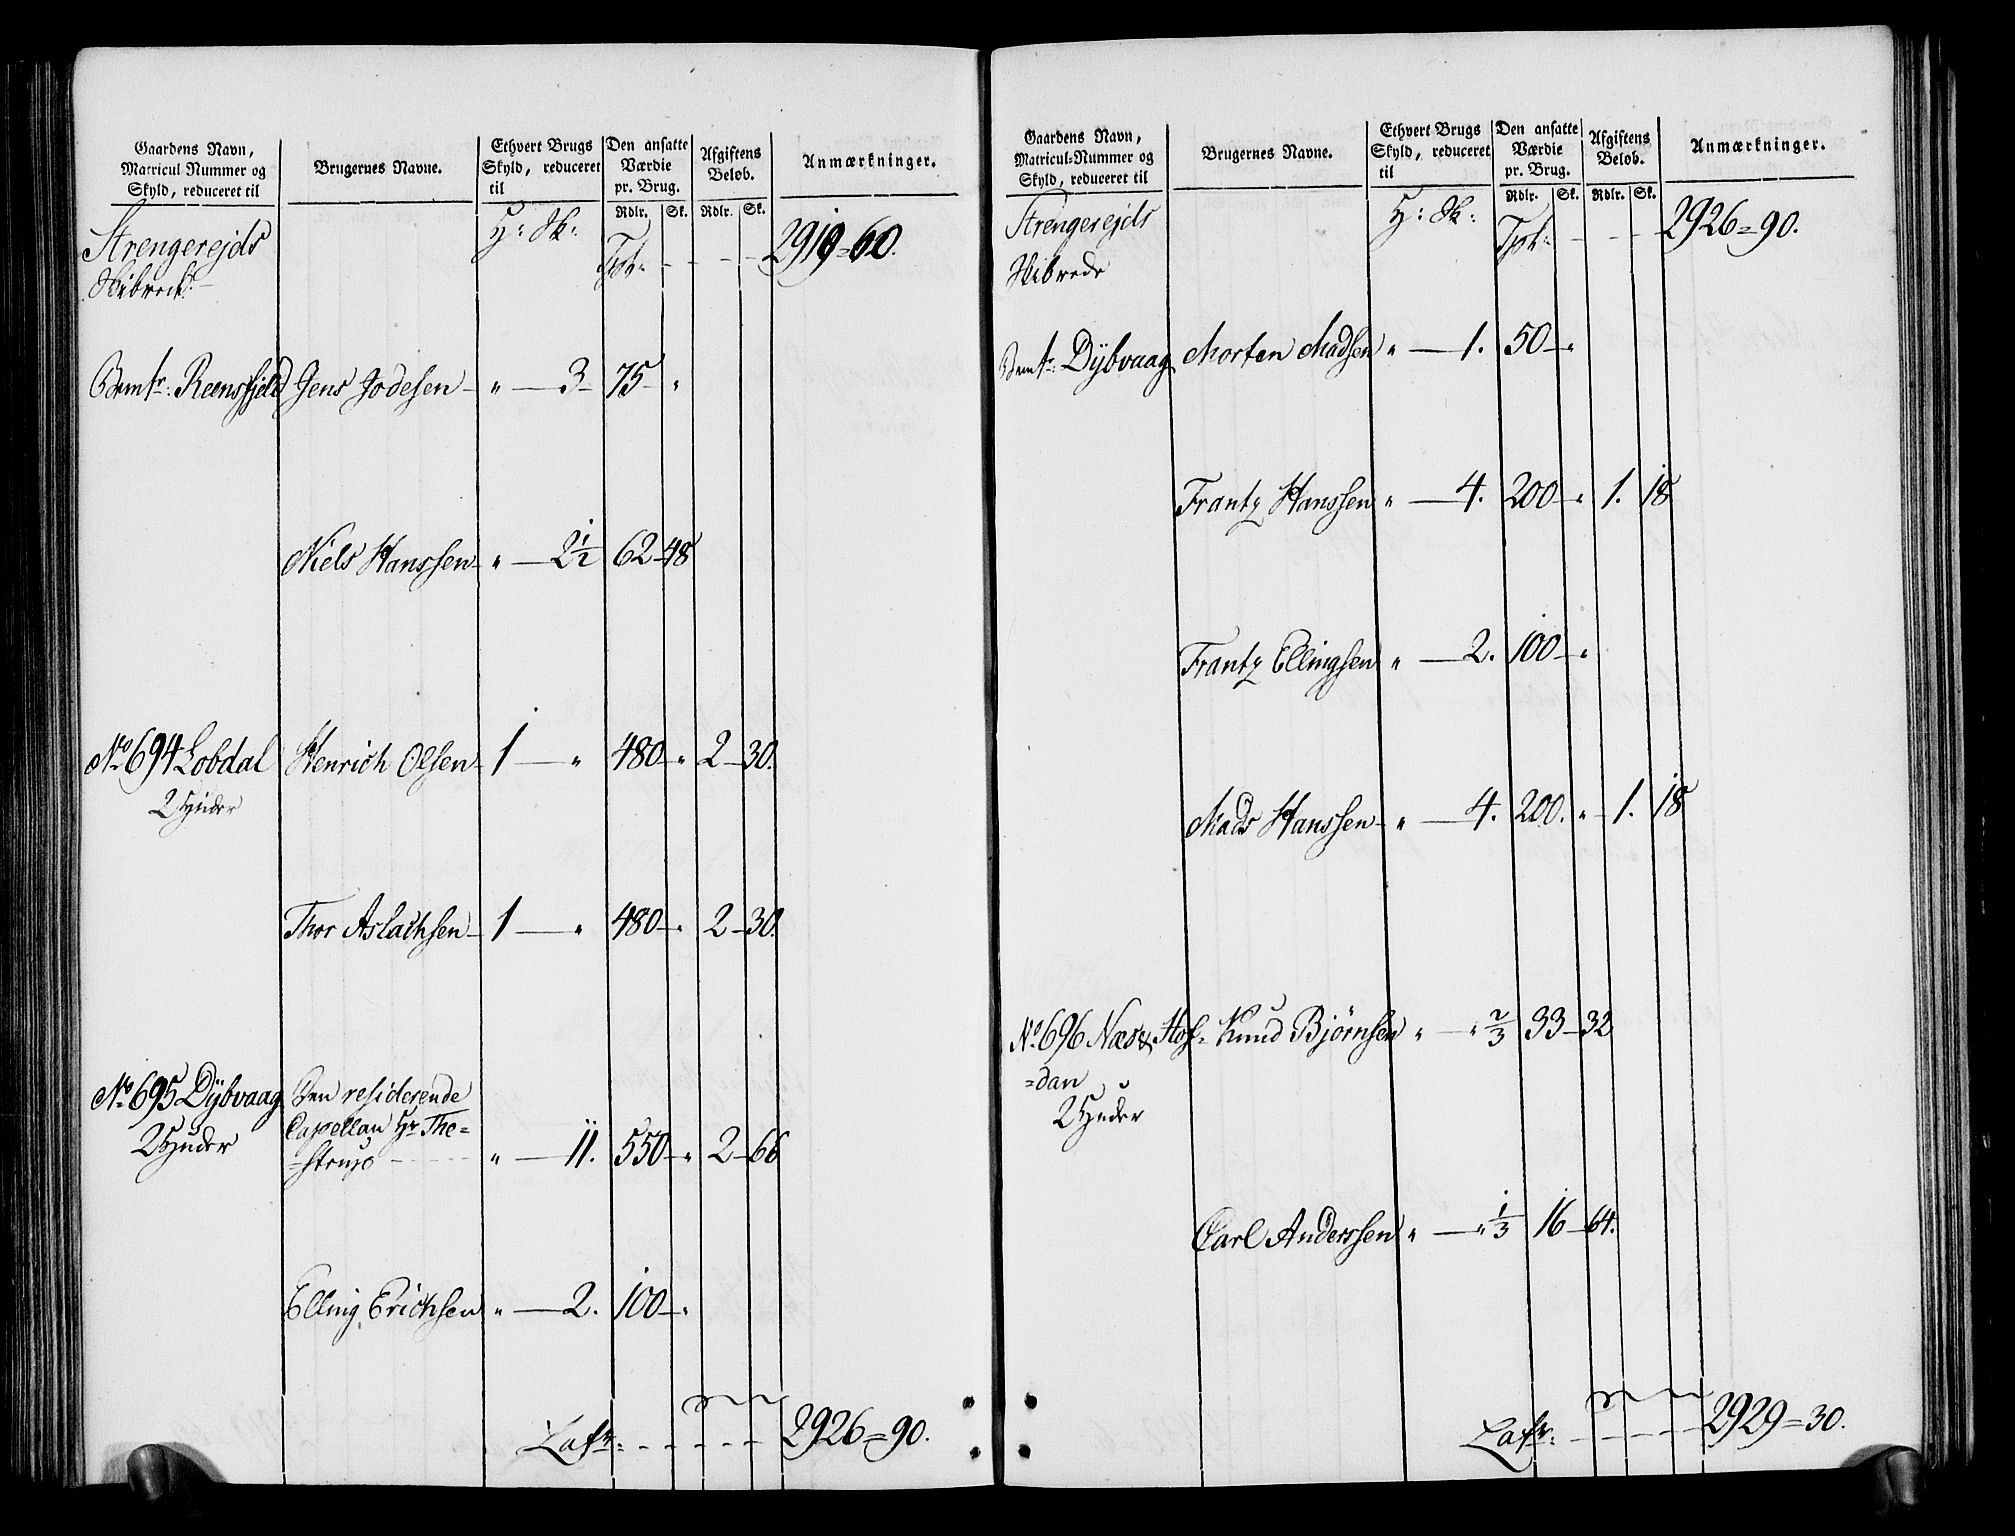 Gaardens Navn,
Matricul Nummer og
Skyld, reduceret til
Brugernes Navne.
Ethvert Brugs
Skyld, reduceret
til
Den ansatte
Værdie
pr. Brug.
Rdlr. Sk.
Afgiftens
Beløb.
Rdlr. Sk.
Anmærkninger.
Strengerejds
Skibred:
H: Sk:
Tpt: - - - 2919=60.
Bemt: Reensfjeld Jens Jodesen - „ — 3 - 75 - „
Niels Hanssen - „ — 2½ 62 - 48
No. 694 Lobdal Henrich Olsen 1 — „ 480 - „ 2 - 30.
2 Huder
Thor Aslachsen - 1 — „ 480 - „ 2 - 30.
No. 695 Dÿbvaag Den residerende
2 Huder Capellan Hr. The=
=strup - - - „ — 11. 550 - „ 2 - 66
Elling Erichsen „ — 2. 100 - „
Lafr: - - - - - 2926=90.
Gaardens Navn,
Matricul-Nummer og
Skyld, reduceret til
Brugernes Navne.
Ethvert Brugs
Skyld, reduceret
til
Den ansatte
Værdie
pr. Brug.
Rdlr. Sk.
Afgiftens
Beløb.
Rdlr. Sk.
Anmærkninger.
Strengerejds
Skibrede
H: Sk:
Tpt: - - - 2926=90.
Bemt: Dÿbvaag Morten Madsen „ — 1. 50 - „
Frantz Hanssen „ — 4. 200 - „ 1. 18
Frantz Ellingsen „ — 2. 100 - „
Mads Hanssen - „ — 4. 200. „ - 1. 18
No. 696 Næs & Hof= Knud Bjørnsen „ — „ 2/3 33 - 32
=dan
2 Huder
Carl Anderssen „ — „ 1/3 16 - 64.
Lafr: - - - - - 2929=30.